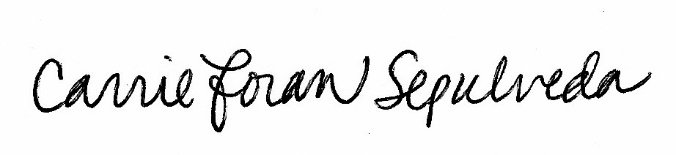 Carrie Foran Sepulveda